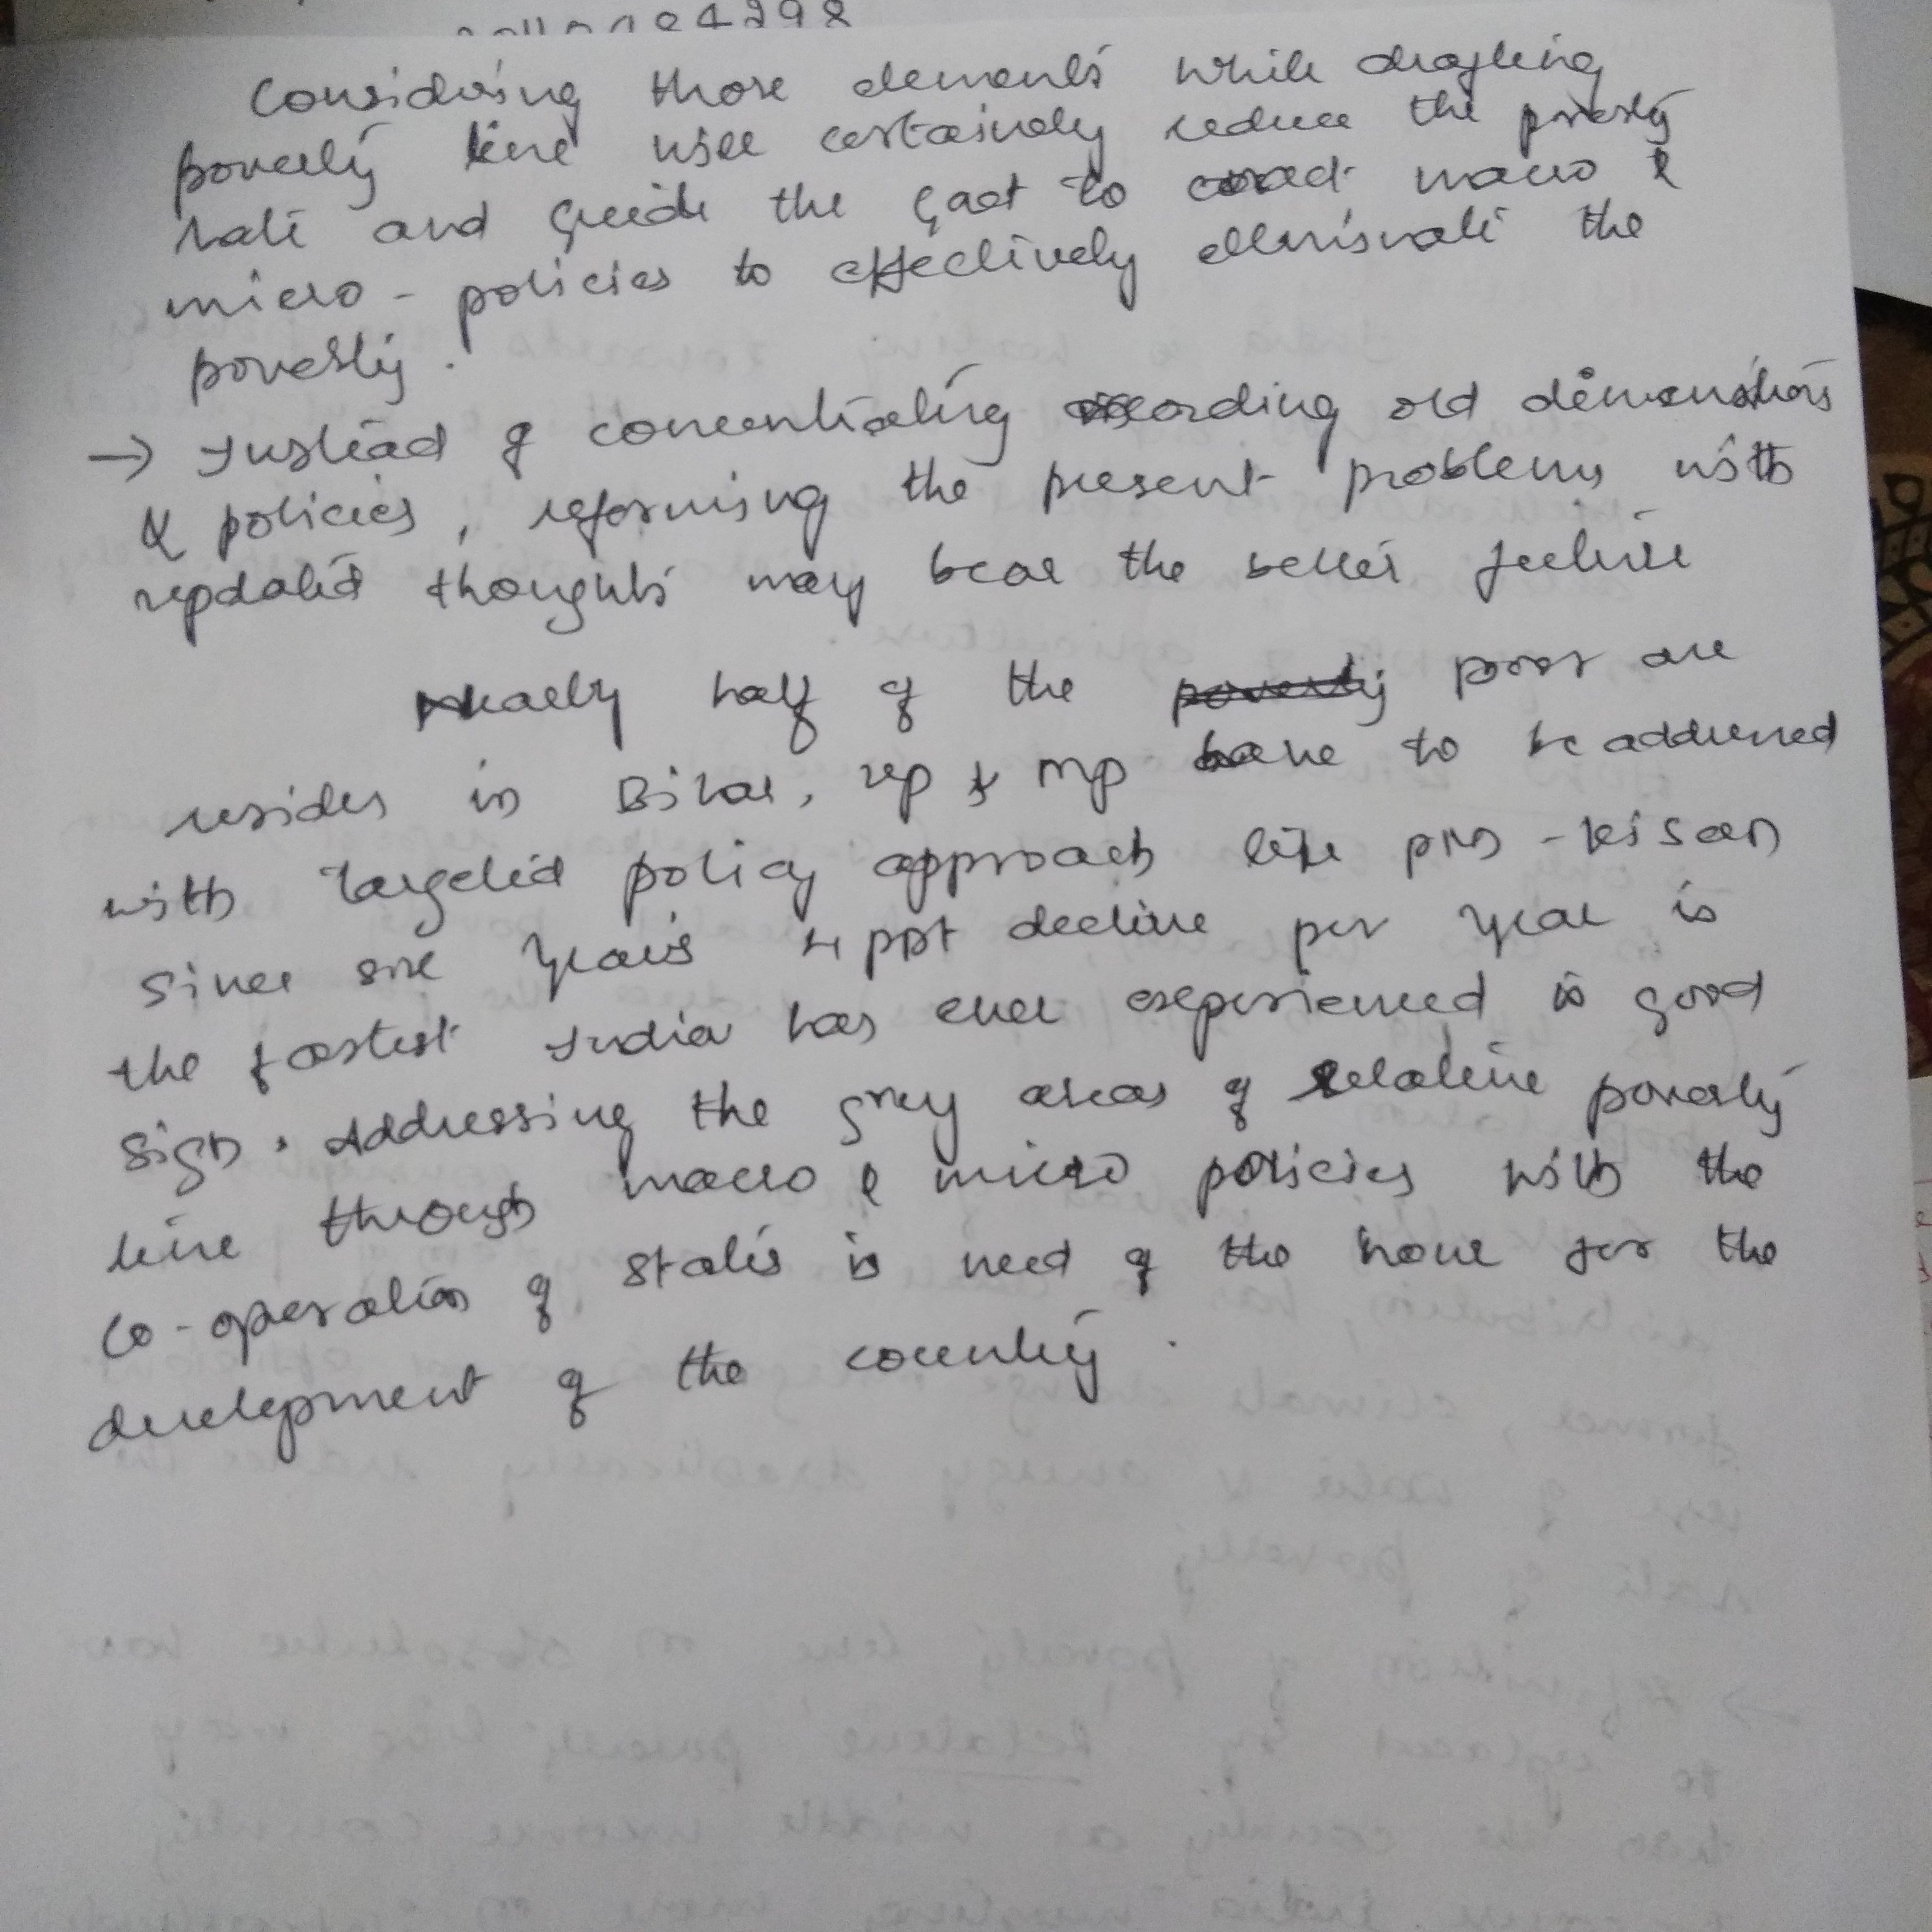 Considering those elements while drafting
poverty line will certainly reduce the poverty
rate and guide the govt to macro &
micro - policies to effectively eliminate the
poverty.
→ Instead of concentrating according old dimensions
& policies, reforming the present problems with
updated thoughts may bear the better future
Nearly half of the poor are
resides in Bihar, UP & MP have to be addressed
with targeted policy approach like PM - Kisan
Since six years 4 ppt decline per year is
the fastest India has ever experienced is good
sign. Addressing the grey areas of relative poverty
line through macro & micro policies with the
co-operation of states is need of the hour for the
development of the country.